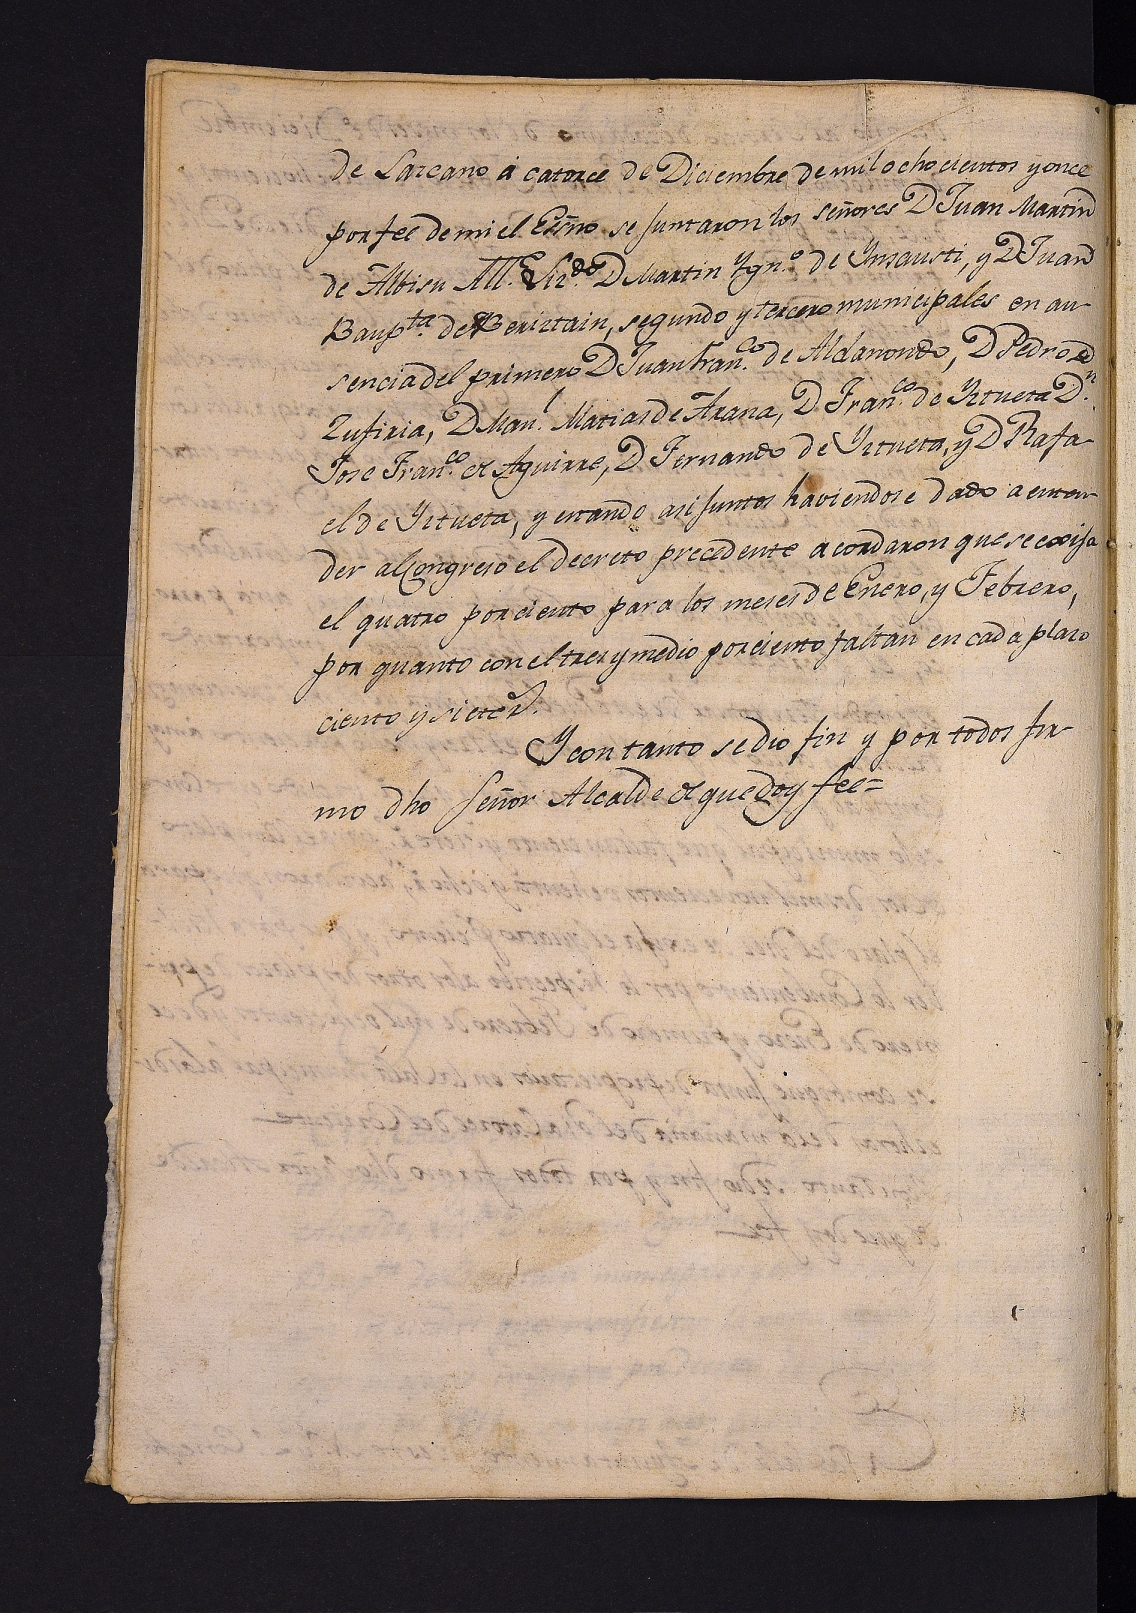 de Lazcano á catorce de Diciembre de mil ochocientos y once
por feé de mi el Essno se juntaron los señores D Juan Martin
de Albisu All.e D Martin Ygn.o de Ynsausti, y D Juan
Baup.ta de Beriztain, segundo y tercero municipales en au-
sencia del primero D Juan Fran.co de Aldanondo, D Pedro de
Zufiria, D Man.l Matias de Arana, D Fran.co de Yztueta D.n
Jose Fran.co de Aguirre, D Fernando de Yztueta, y D Rafa-
el de Yztueta, y estando asi juntos haviendose dado a enten-
der al Congreso el decreto precedente acordaron que se exija
el quatro por ciento para los meses de Enero, y Febrero,
por quanto con el tres y medio por ciento faltan en cada plazo
ciento y siete r.s
Y con tanto se dio fin y por todos fir-
mo dho Señor Alcalde de que doy feé=